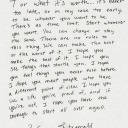 For what it's worth: it's never
too late, or in my case too early
to be whoever you want to be.
There's no time limit. Start whenever
you want. You can change or stay
the same. There are no rules to
this thing. We can make the best
or the worst of it. I hope you
make the best of it. I hope you
see things that startle you. I hope
you feel things you never felt before.
I hope you meet people who have
a different point of view. I hope you
live a life you're proud of and if
you're not, I hope you have the
courage to start all over again.
Fitzgerald